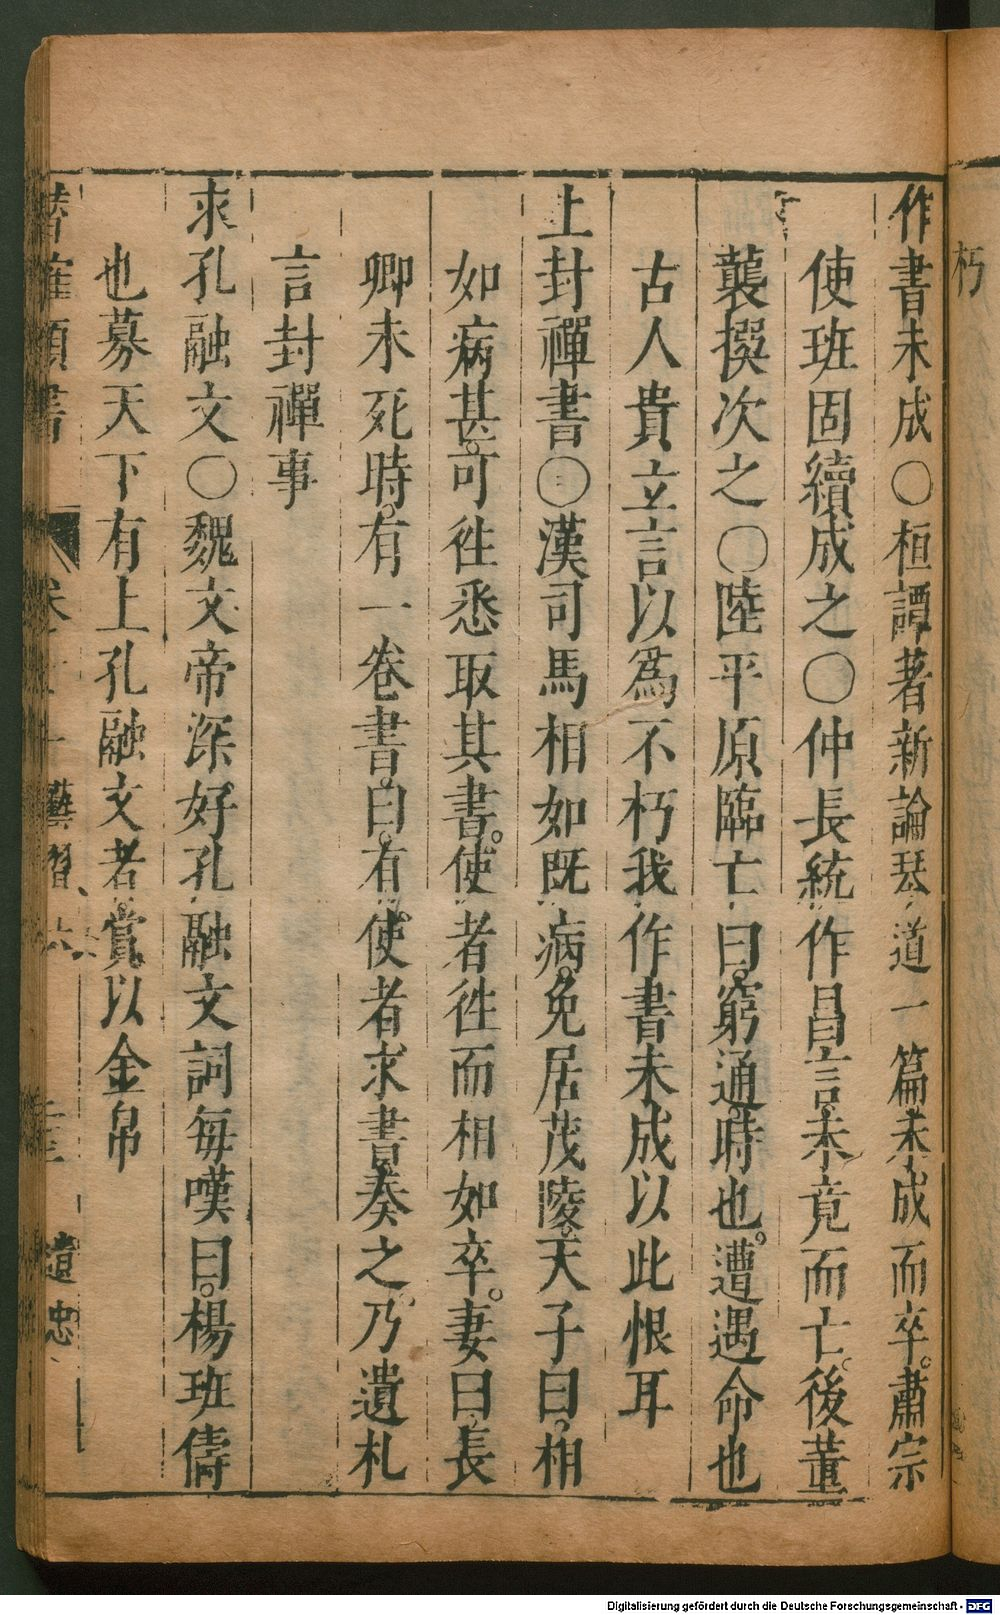 朽
作書未成〇桓譚著新論琴道一篇未成而卒。肅宗
使班固續成之〇仲長統作昌言未竟而亡。後董
襲撰次之〇陸平原臨亡曰。窮通。時也。遭遇命也
古人貴立言以爲不朽我作書未成以此恨耳
上封禪書〇漢司馬相如既病。免居茂陵。天子曰。相
如病甚。可徃悉取其書。使者徃而相如卒。妻曰。長
卿未死時。有一卷書。曰。有使者求書。奏之。乃遺札
言封禪事
求孔融文〇魏文帝深好孔融文詞每嘆曰。楊班儔
也募天下有上孔融文者。賞以金帛
類書 藝習 六 遺忠
Digitalisierung gefördert durch die Deutsche Forschungsgemeinschaft - DFG